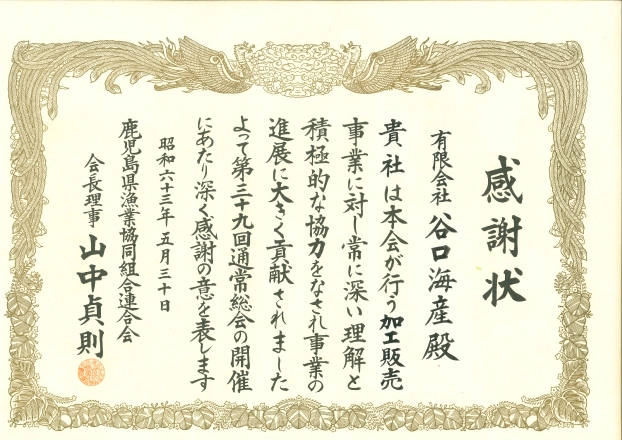 感謝状
有限会社 谷口海産殿
貴社は本会が行う加工販売
事業に対し常に深い理解と
積極的な協力をなされ事業の
進展に大きく貢献されました
よって第三十九回通常総会の開催
にあたり深く感謝の意を表します
昭和六十三年五月三十日
鹿児島県漁業協同組合連合会
会長理事 山中貞則